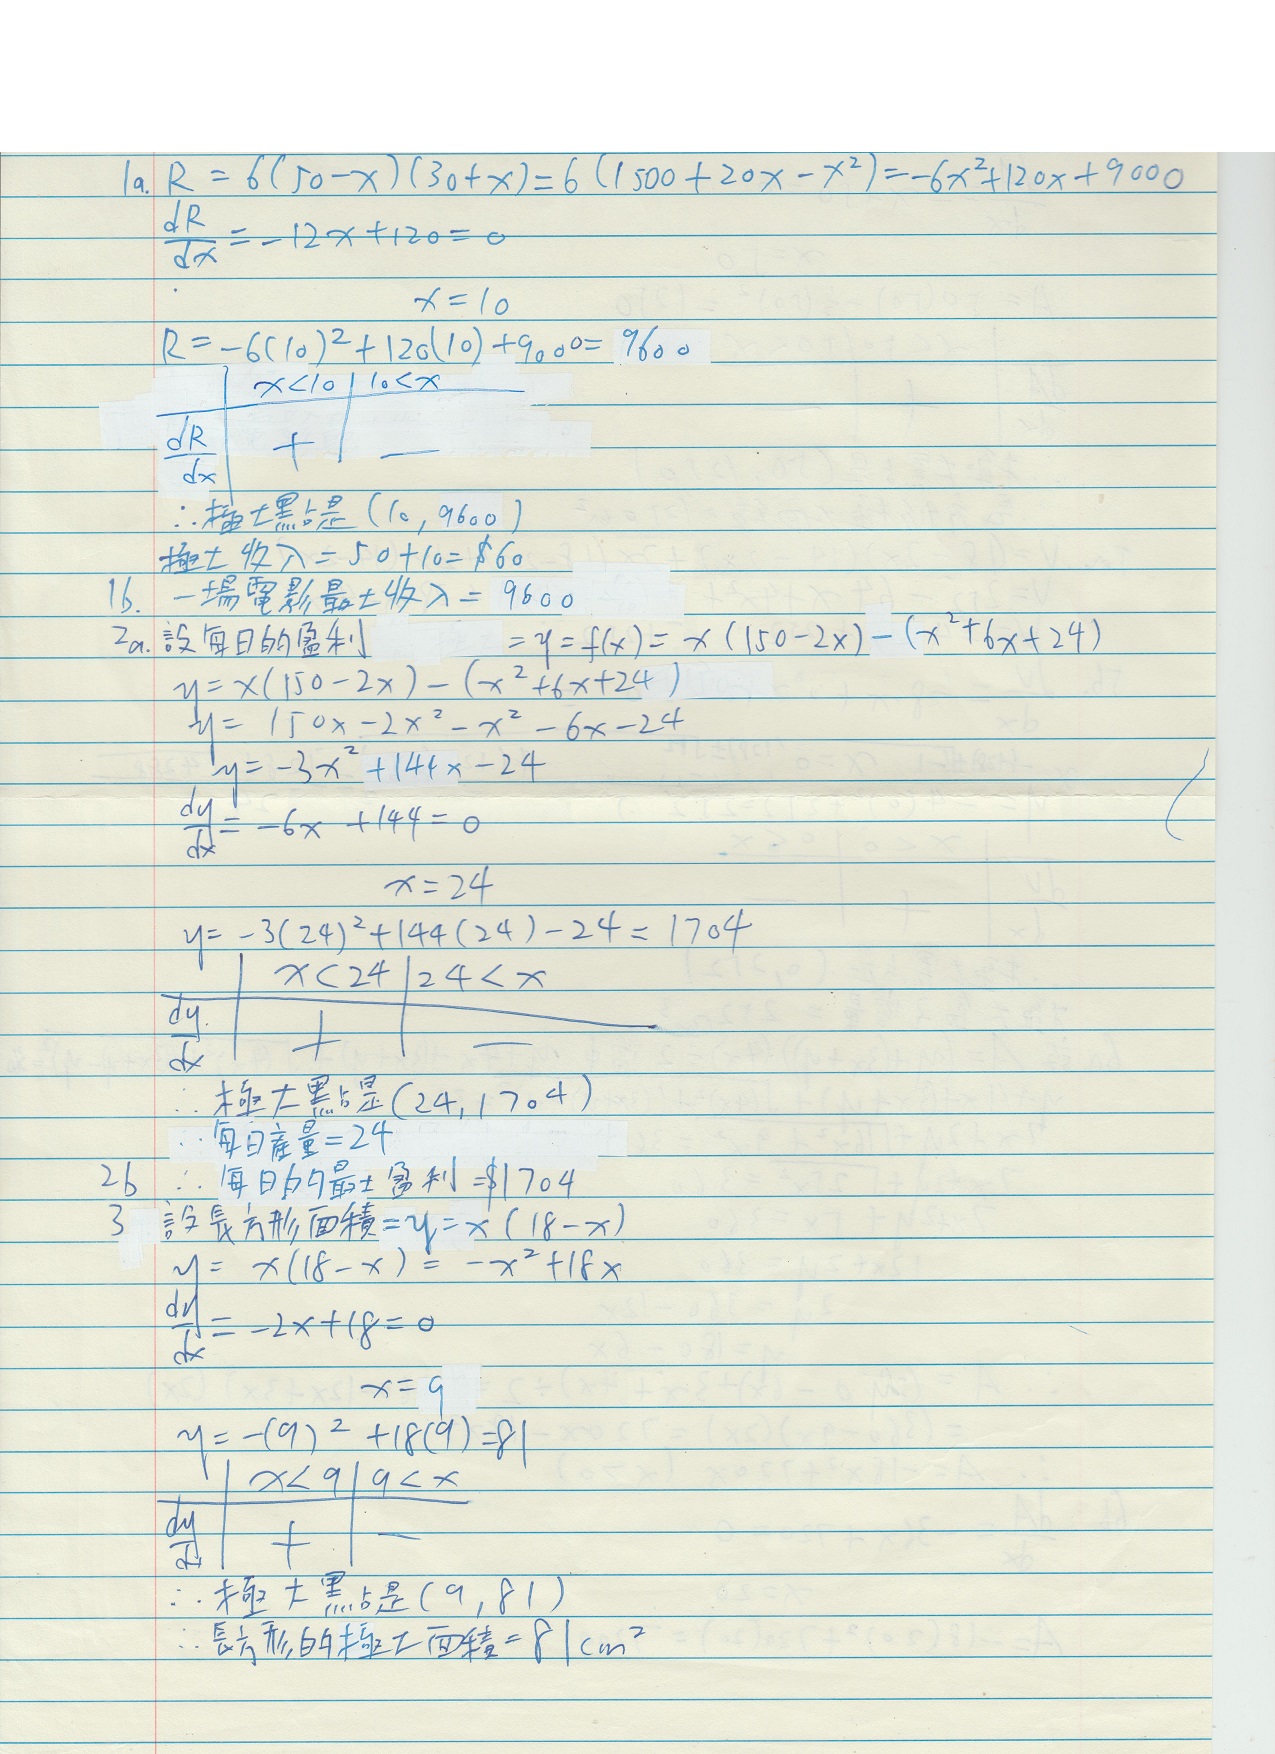 1a. R = 6(50-x)(30+x)=6(1500+20x-x²)=-6x²+120x+9000
dR/dx = -12x+120=0
x=10
R=-6(10)²+120(10)+9000=9600
x<10 | 10<x
dR/dx + —
∴極大點是(10,9600)
極大收入=50+10=$60
1b. 一場電影最大收入=9600
2a. 設每日的盈利 =y=f(x)=x(150-2x)-(x²+6x+24)
y=x(150-2x)-(x²+6x+24)
y= 150x-2x²-x²-6x-24
y=-3x²+144x-24
dy/dx = -6x+144=0
x=24
y=-3(24)²+144(24)-24=1704
x<24 | 24<x
dy/dx + —
∴極大點是(24,1704)
∴每日產量=24
2b ∴每日的最大盈利=$1704
3 設長方形面積=y=x(18-x)
y= x(18-x)= -x²+18x
dy/dx = -2x+18=0
x=9
y=-(9)²+18(9)=81
x<9 | 9<x
dy/dx + —
∴極大點是(9,81)
∴長方形的極大面積=81cm²